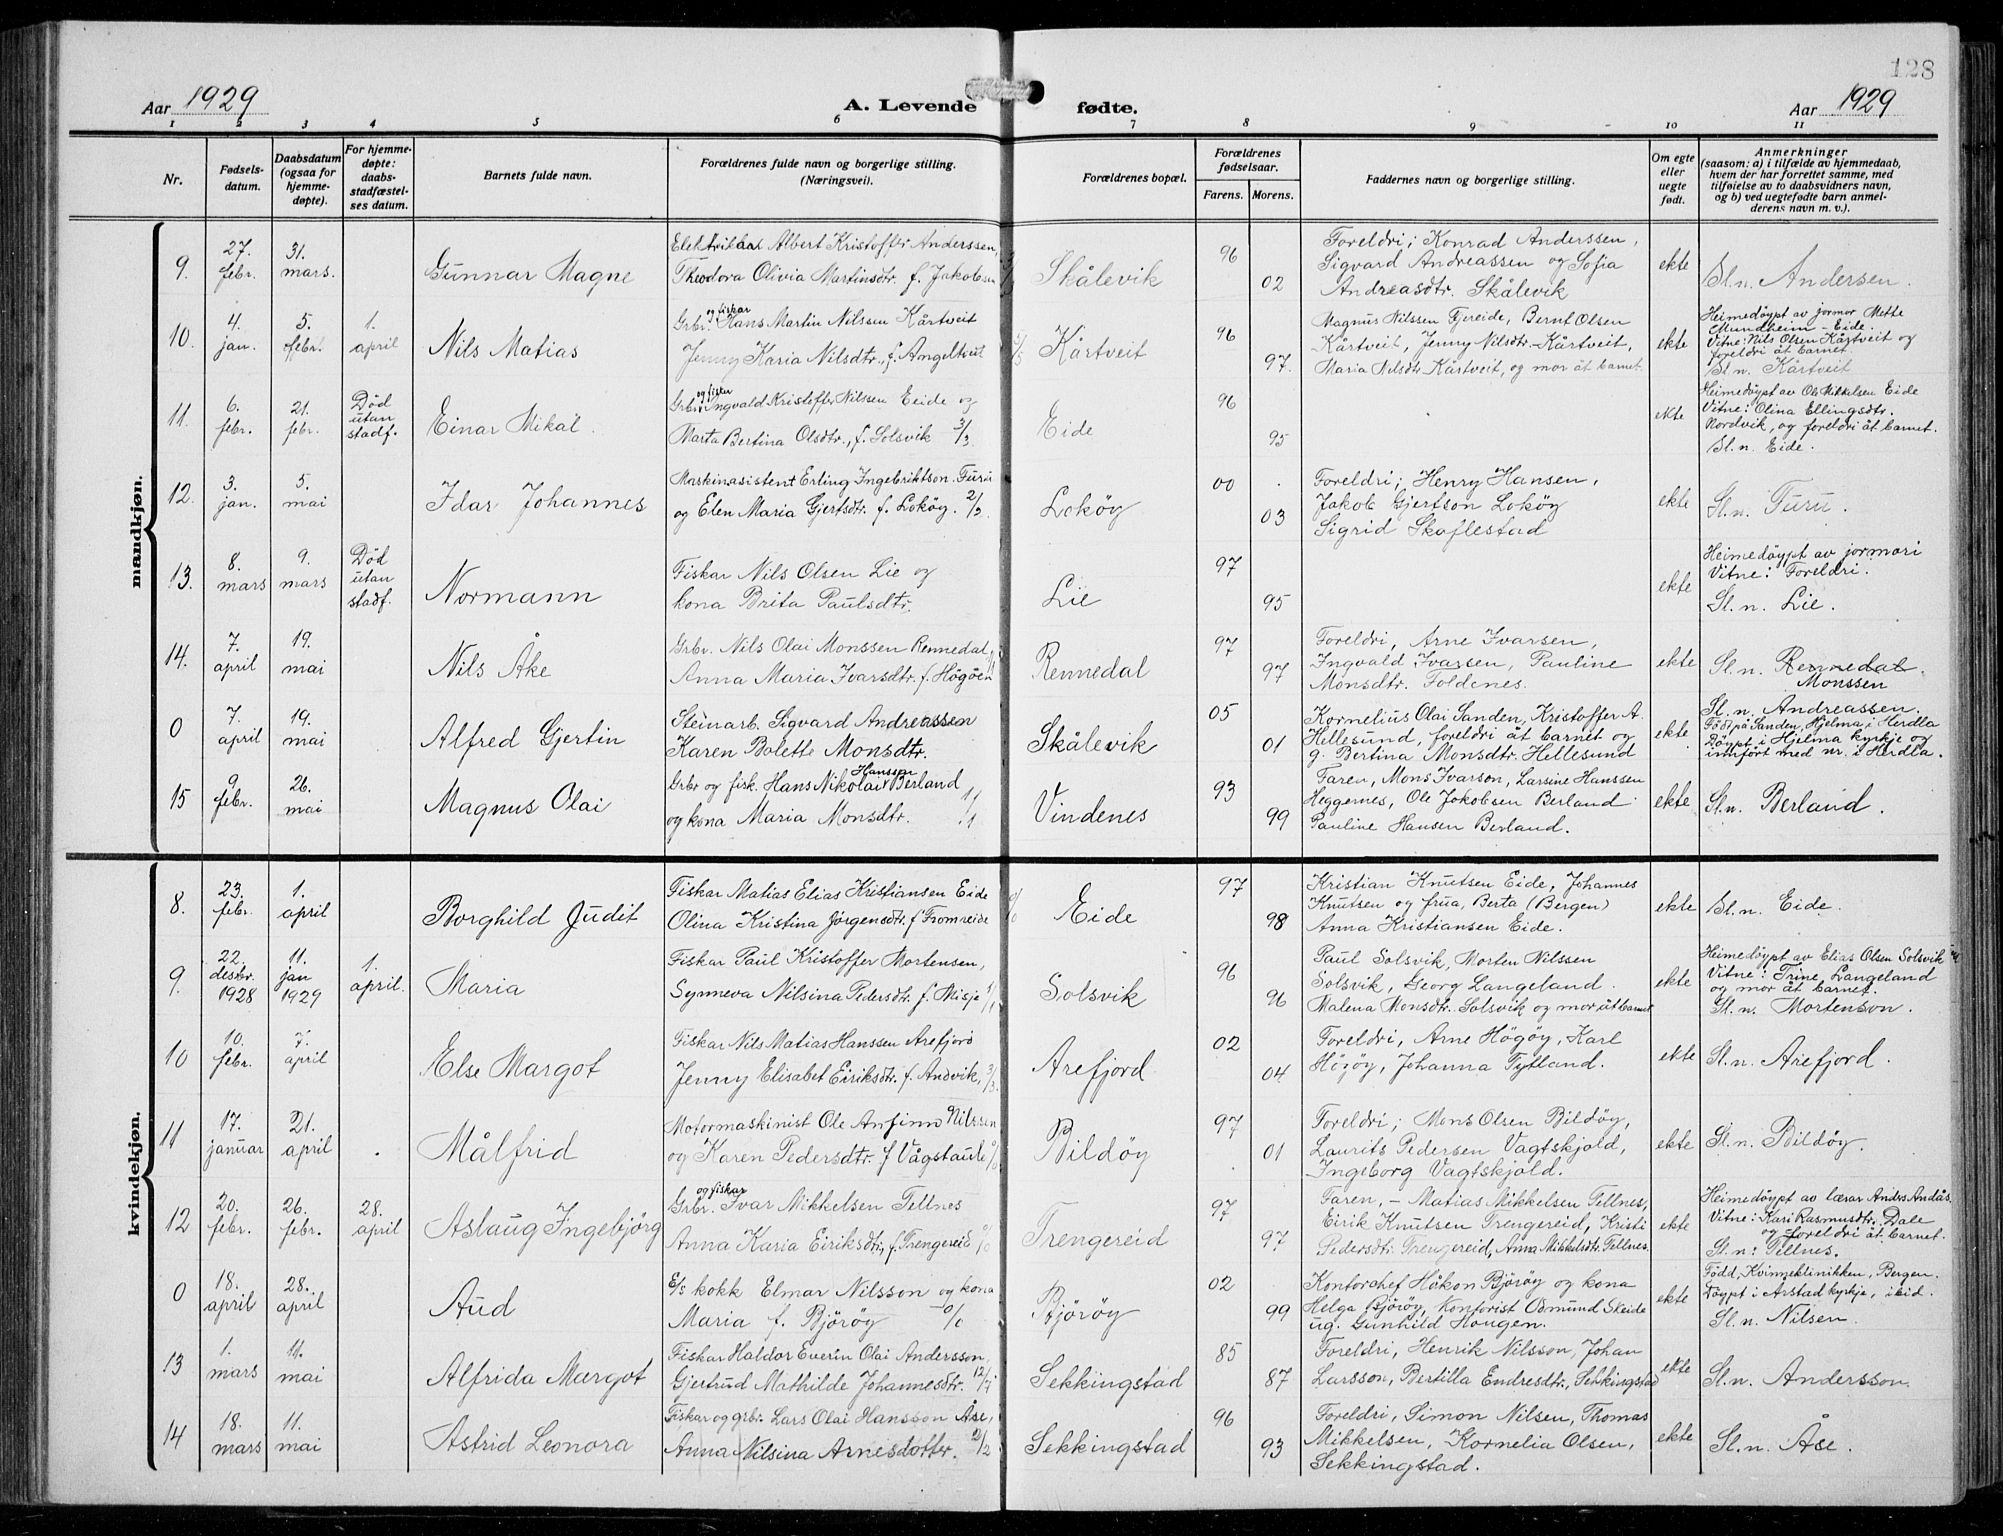 128
Aar 1929
A. Levende fødte.
Aar 1929
1 2 3 4 5 6 7 8 9 10 11
Nr.
Fødsels-
datum.
Daabsdatum
(ogsaa for
hjemme-
døpte).
For hjemme-
døpte:
daabs-
stadfæstel-
ses datum.
Barnets fulde navn.
Forældrenes fulde navn og borgerlige stilling.
(Næringsvei).
Forældrenes bopæl.
Forældrenes
fødselsaar.
Farens. Morens.
Faddernes navn og borgerlige stilling.
Om egte
eller
uegte
født.
Anmerkninger
(saasom: a) i tilfælde av hjemmedaab,
hvem der har forrettet samme, med
tilføielse av to daabsvidners navn,
og b) ved uegtefødte barn anmel-
derens navn m. v.).
mandkjøn.
9
27.
febr.
31.
mars.
Gunnar Magne
Elektrikar Albert Kristoffer Anderssen,
Theodora Olivia Martinsdtr. f. Jakobsen
Skålevik
96
02
Foreldri; Konrad Anderssen,
Sigvard Andreassen og Sofia
Andreasdtr. Skålevik
ekte
Sl.n. Andersen.
10.
4.
jan.
5.
febr.
1.
april
Nils Matias
og fiskar
Grbr. Hans Martin Nilssen Kårtveit
Jenny Karia Nilsdtr., f. Angeltveit
5/5
Kårtveit
96
97.
Magnus Nilssen Fjereide, Bernt Olsen
Kårtveit, Jenny Nilsdtr. Kårtveit,
Maria Nilsdtr. Kårtveit, og mor åt barnet.
ekte
Heimedöypt av jormor Mette
Mundheim - Eide.
Vitne: Nils Olsen Kårtveit og
foreldri åt barnet.
Sl. n. Kårtveit
11.
6.
febr.
21.
febr.
Död
utan
stadf.
Einar Mikal.
og fiskar
Grbr. Ingvald Kristoffer Nilssen Eide og
Marta Bertina Olsdtr., f. Solsvik 3/3
Eide
96
95
ekte
Heimedöypt av Ole Mikkelsen Eide
Vitne: Olina Ellingsdtr.
Nordvik, og foreldri åt barnet.
Sl. n. Eide.
12.
3.
jan.
5.
mai
Idar Johannes
Maskinasistent Erling Ingebriktson Furu
og Elen Maria Gjertsdtr. f. Loköy. 2/2.
Loköy
00
03
Foreldri; Henry Hansen,
Jakob Gjertson Loköy
Sigrid Skaflestad
ekte
Sl. n. Furu.
13.
8.
mars
9.
mars
Död
utan
stadf.
Normann
Fiskar Nils Olsen Lie og
kona Brita Paulsdtr.
Lie
97
95
ekte
Heimedöypt av jormori
Vitne: Foreldri.
Sl. n. Lie.
14.
7.
april
19.
mai
Nils Åke
Grbr. Nils Olai Monssen Rennedal
Anna Maria Ivarsdtr. f. Högöen
Rennedal
97
97
Foreldri, Arne Ivarsen,
Ingvald Ivarsen, Pauline
Monsdtr. Foldenes.
ekte
Sl. n. Rennedal.
Monssen
0
7.
april
19.
mai
Alfred Gjertin
Steinarb. Sigvard Andreassen
Karen Bolette Monsdtr.
Skålevik
05
01
Kornelius Olai Sanden, Kristoffer A.
Hellesund, foreldri åt barnet og
g. Bertina Monsdtr. Hellesund
ekte
Sl. n. Andreassen.
Födt på Sanden, Hjelma i Herdla
Döypt i Hjelma kyrkje og
innfört med nr. i Herdla.
15
9.
febr.
26.
mai
Magnus Olai
Hanssen
Grbr og fisk. Hans Nikolai Berland
og kona Maria Monsdtr. 1/1
Vindenes
93
99
Faren, Mons Ivarson, Larsine Hanssen
Heggernes, Ole Jakobsen Berland
Pauline Hansen Berland.
ekte
Sl.n. Berland.
kvindekjøn.
8.
23.
febr.
1.
april
Borghild Judit
Fiskar Matias Elias Kristiansen Eide
Olina Kristina Jörgensdtr. f. Fromreide
0/0
Eide
97
98
Kristian Knutsen Eide, Johannes
Knutsen og frua, Berta (Bergen)
Anna Kristiansen Eide.
ekte
Sl. n. Eide.
9.
22.
desbr.
1928
11.
jan
1929
1.
april.
Maria
Fiskar Paul Kristoffer Mortensen,
Synneva Nilsina Pedersdtr. f. Misje 1/1
Solsvik
96
96
Paul Solsvik, Morten Nilssen
Solsvik, Georg Langeland.
Malena Monsdtr. Solsvik og mor åt barnet
ekte
Heimedöypt av Elias Olsen Solsvik
Vitne: Trine Langeland
og mor åt barnet.
Sl. n. Mortenson.
10
10.
febr.
7.
april
Else Margot
Fiskar Nils Matias Hanssen Arefjord
Jenny Elisabet Eiriksdtr. f. Andvik, 3/3.
Arefjord
02
04
Foreldri, Arne Högöy, Karl
Högöy, Johanna Tytland.
ekte
Sl. n. Arefjord.
11
17.
januar
21.
april
Målfrid
Motormaskinist Ole Anfinn Nilssen
og Karen Pedersdtr. f. Vågstaule 0/0
Bildöy
97
01
Foreldri; Mons Olsen Bildöy,
Laurits Pedersen Vagtskjold,
Ingeborg Vagtskjold.
ekte
Sl. n. Bildöy.
12
20.
febr.
26.
febr.
28.
april
Aslaug Ingebjörg
og fiskar
Grbr. Ivar Mikkelsen Tellnes
Anna Karia Eiriksdtr, f. Trengereid 0/0
Trengereid
97
97
Faren, - Matias Mikkelsen Tellnes,
Eirik Knutsen Trengereid, Kristi
Pedersdtr. Trengereid, Anna Mikkelsdtr. Tellnes.
ekte
Heimedöypt av lærar Anders Andås.
Vitne: Kari Rasmusdtr. Dale
og foreldri åt barnet.
Sl. n: Tellnes.
0
18.
april
28.
april
Aud
E/s kokk Elmar Nilsson og kona
Maria f. Björöy 0/0
Björöy
02
99
Kontorchef Håkon Björöy og kona
Helga Björöy, Kontorist Odmund Skeide
ug. Gunhild Hougen.
ekte
Född, Kvinneklinikken, Bergen.
Döypt i Årstad kyrkje, ibid.
Sl. n. Nilsen.
13
1.
mars
11.
mai
Alfrida Margot
Fiskar Haldor Everin Olai Andersson,
Gjertrud Mathilde Johannesdtr. 12/7
Sekkingstad
85
87
Foreldri, Henrik Nilsson, Johan
Larsson, Bertilla Endresdtr., Sekkingstad
ekte
Sl. n. Andersson.
14
18.
mars
11.
mai
Astrid Leonora
Fiskar og grbr. Lars Olai Hansson Åse,
Anna Nilsina Arnesdotter. 2/2
Sekkingstad
96
93
Foreldri, Simon Nilsen, Thomas
Mikkelsen, Kornelia Olsen,
Sekkingstad.
ekte
Sl. n. Åse.